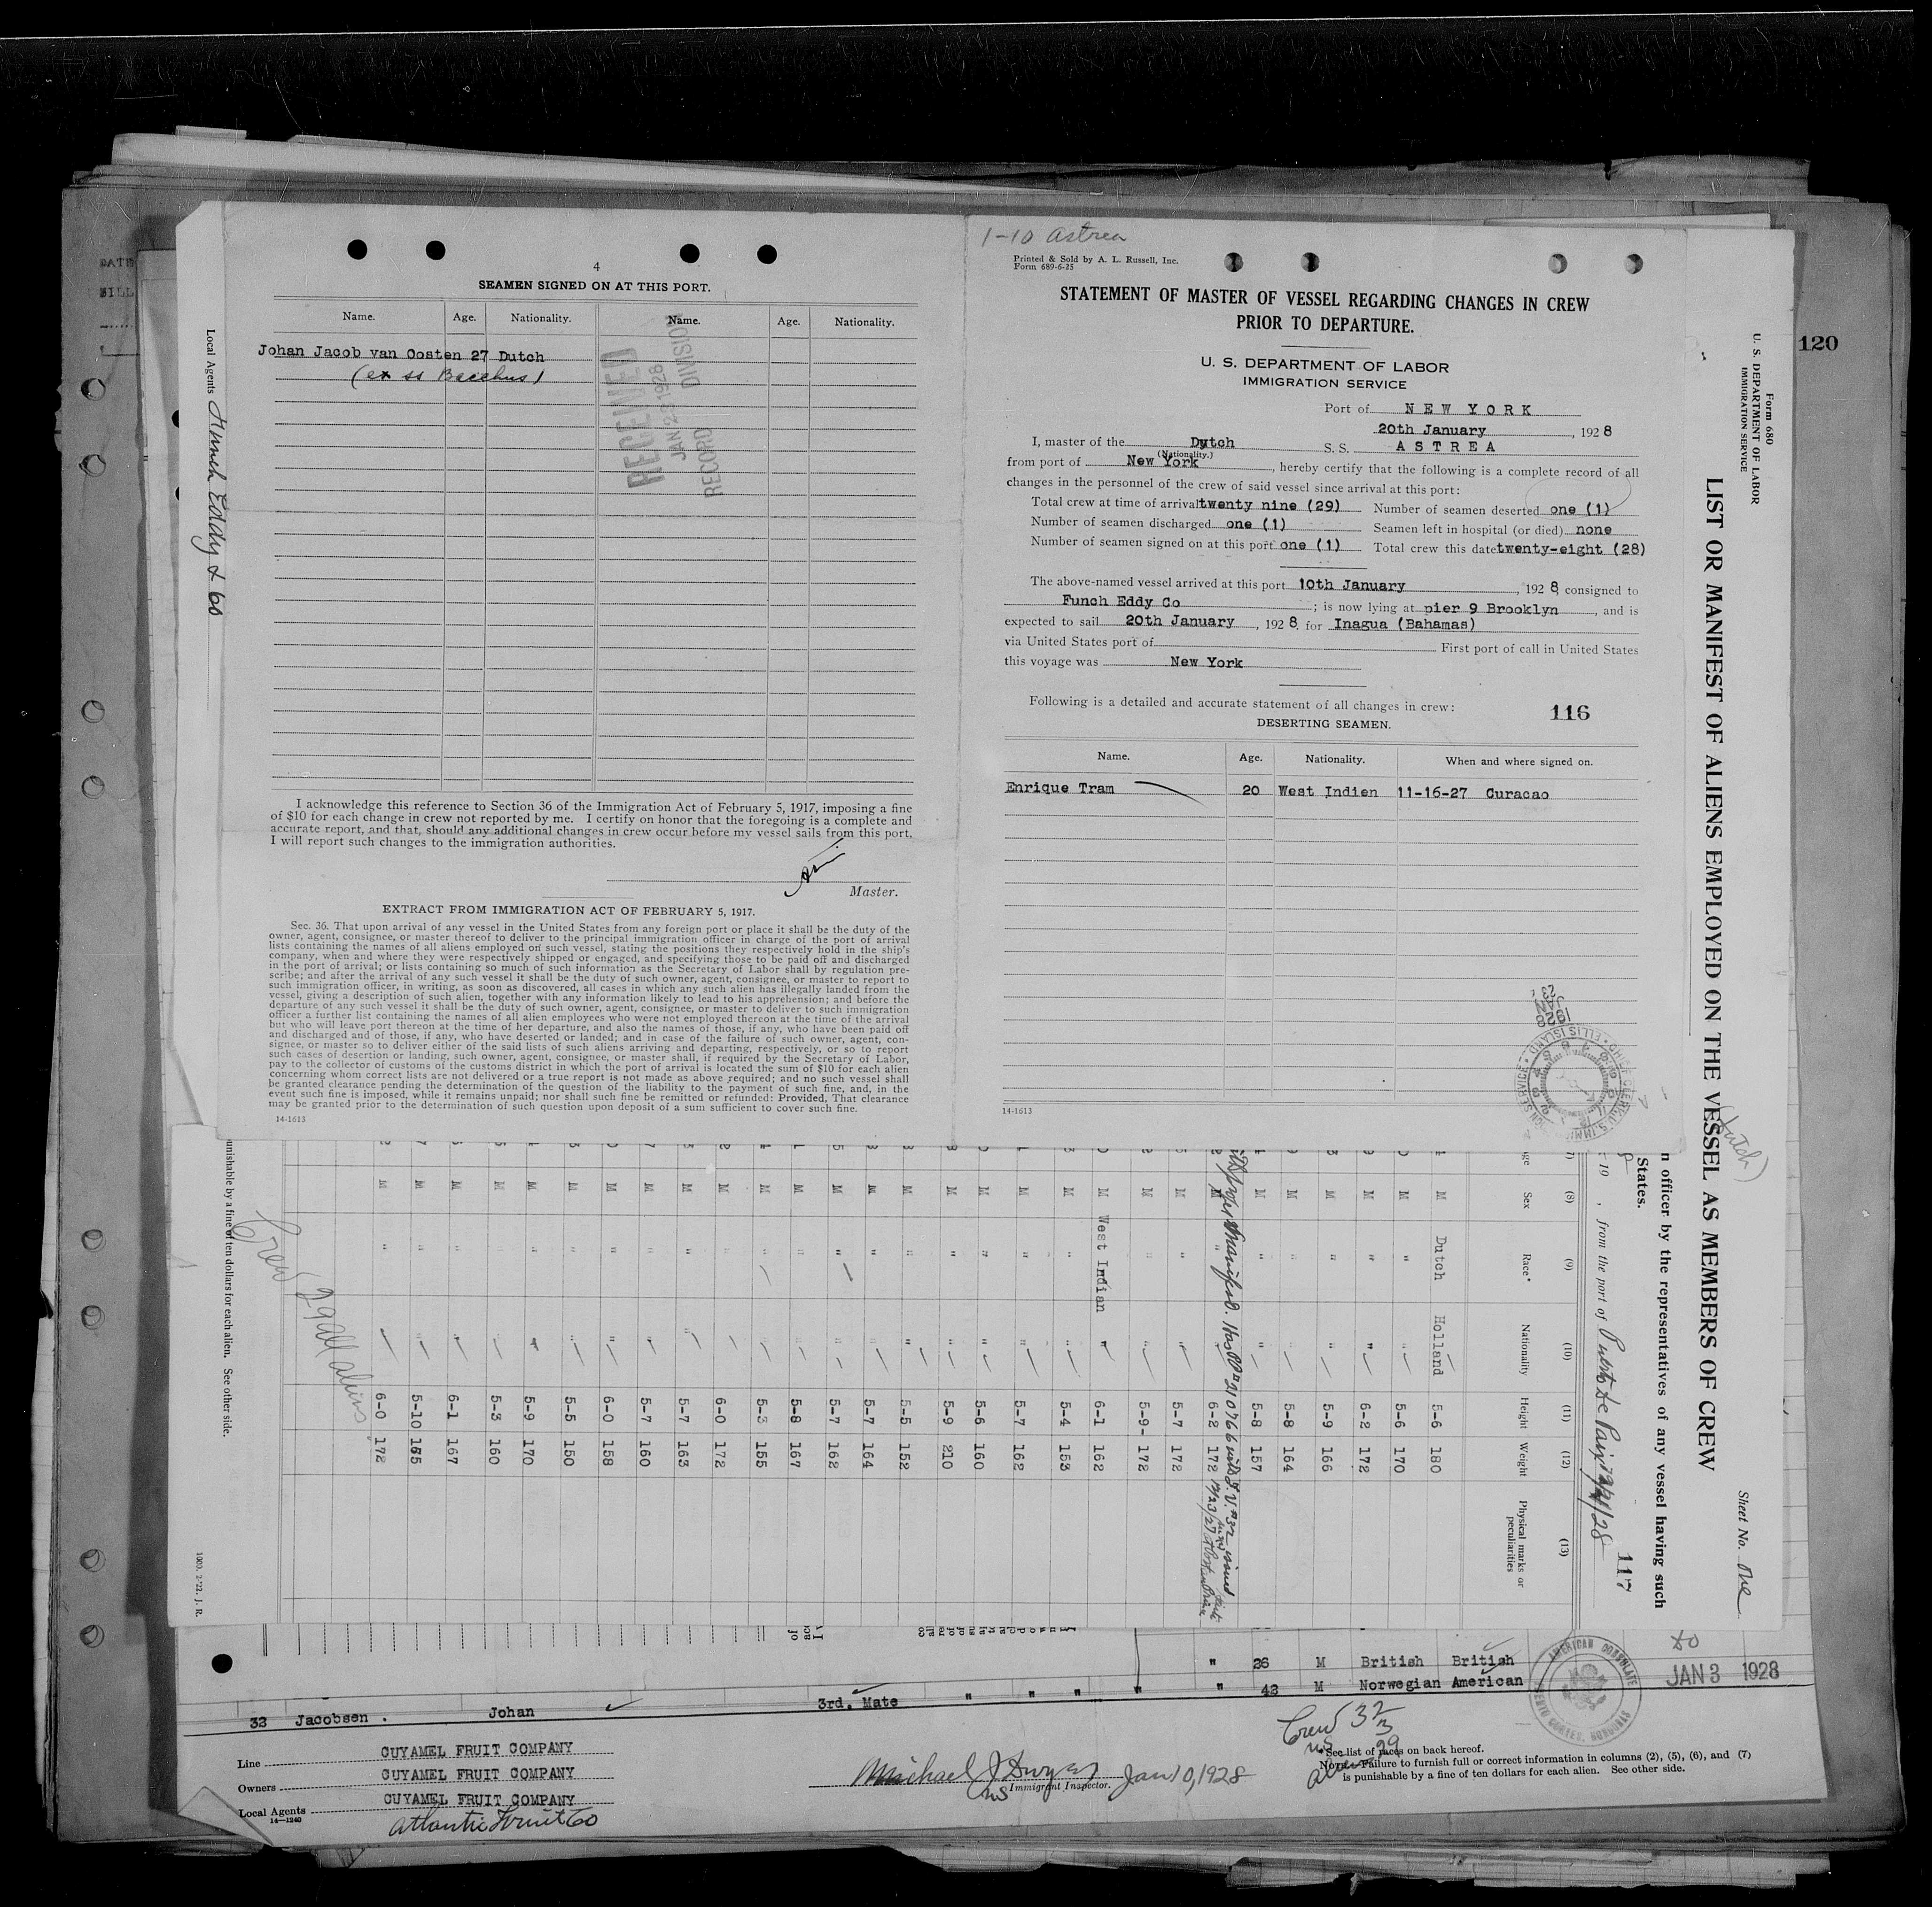 1-10 Astrea
Printed & Sold by A. L. Russell, Inc.
Form 689-6-25
STATEMENT OF MASTER OF VESSEL REGARDING CHANGES IN CREW
PRIOR TO DEPARTURE.
U. S. DEPARTMENT OF LABOR
IMMIGRATION SERVICE
Port of NEW YORK
20th January, 1928
I, master of the Dutch S. S. ASTREA
(Nationality.)
from port of New York, hereby certify that the following is a complete record of all
changes in the personnel of the crew of said vessel since arrival at this port:
Total crew at time of arrival twenty nine (29) Number of seamen deserted one (1)
Number of seamen discharged one (1) Seamen left in hospital (or died) none
Number of seamen signed on at this port one (1) Total crew this date twenty-eight (28)
The above-named vessel arrived at this port 10th January, 1928, consigned to
Funch Eddy Co; is now lying at pier 9 Brooklyn, and is
expected to sail 20th January, 1928, for Inagua (Bahamas)
via United States port of First port of call in United States
this voyage was New York
Following is a detailed and accurate statement of all changes in crew:
116
DESERTING SEAMEN.
Name. Age. Nationality. When and where signed on.
Enrique Tram 20 West Indien 11-16-27 Curacao
14-1613
4
SEAMEN SIGNED ON AT THIS PORT.
Name. Age. Nationality. Name. Age. Nationality.
Johan Jacob van Oosten 27 Dutch
(ex ss Bacchus)
RECEIVED
RECORD DIVISION
I acknowledge this reference to Section 36 of the Immigration Act of February 5, 1917, imposing a fine
of $10 for each change in crew not reported by me. I certify on honor that the foregoing is a complete and
accurate report, and that, should any additional changes in crew occur before my vessel sails from this port,
I will report such changes to the immigration authorities.
Master.
EXTRACT FROM IMMIGRATION ACT OF FEBRUARY 5, 1917.
Sec. 36. That upon arrival of any vessel in the United States from any foreign port or place it shall be the duty of the
owner, agent, consignee, or master thereof to deliver to the principal immigration officer in charge of the port of arrival
lists containing the names of all aliens employed on such vessel, stating the positions they respectively hold in the ship's
company, when and where they were respectively shipped or engaged, and specifying those to be paid off and discharged
in the port of arrival; or lists containing so much of such information as the Secretary of Labor shall by regulation pre-
scribe; and after the arrival of any such vessel it shall be the duty of such owner, agent, consignee, or master to report to
such immigration officer, in writing, as soon as discovered, all cases in which any such alien has illegally landed from the
vessel, giving a description of such alien, together with any information likely to lead to his apprehension; and before the
departure of any such vessel it shall be the duty of such owner, agent, consignee, or master to deliver to such immigration
officer a further list containing the names of all alien employees who were not employed thereon at the time of the arrival
but who will leave port thereon at the time of her departure, and also the names of those, if any, who have been paid off
and discharged and of those, if any, who have deserted or landed; and in case of the failure of such owner, agent, con-
signee, or master so to deliver either of the said lists of such aliens arriving and departing, respectively, or so to report
such cases of desertion or landing, such owner, agent, consignee, or master shall, if required by the Secretary of Labor,
pay to the collector of customs of the customs district in which the port of arrival is located the sum of $10 for each alien
concerning whom correct lists are not delivered or a true report is not made as above required; and no such vessel shall
be granted clearance pending the determination of the question of the liability to the payment of such fine, and, in the
event such fine is imposed, while it remains unpaid; nor shall such fine be remitted or refunded: Provided, That clearance
may be granted prior to the determination of such question upon deposit of a sum sufficient to cover such fine.
14-1613
Local Agents Funch Eddy & Co
120
Form 680
U. S. DEPARTMENT OF LABOR
IMMIGRATION SERVICE
LIST OR MANIFEST OF ALIENS EMPLOYED ON THE VESSEL AS MEMBERS OF CREW
(Dutch)
Sheet No. One
n officer by the representatives of any vessel having such
States.
117
19 , from the port of
(8) (9) (10) (11) (12) (13)
Sex Race* Nationality Height Weight Physical marks or peculiarities
M Dutch Holland 5-6 180
M " " 5-6 170
M " " 6-2 172
M " " 5-9 166
M " " 5-8 164
M " " 5-8 157
M " 6-2 172
M " " 5-7 172
M " " 5-9- 172
M West Indian " 6-1 162
M " " 5-4 153
M " " 5-7 162
M " " 5-6 160
M " " 5-9 210
M " " 5-5 152
M " " 5-7 164
M " " 5-7 162
M " " 5-8 167
M " " 5-3 155
M " " 6-0 172
M " " 5-7 163
M " " 5-7 160
M " " 6-0 158
M " " 5-5 150
M " " 5-9 170
M " " 5-3 160
M " " 6-1 167
M " " 5-10 165
M " " 6-0 172
Crew 29 all aliens
unishable by a fine of ten dollars for each alien. See other side.
1000. 2-'22. J. R.
" 26 M British British
32 Jacobsen . Johan 3rd. Mate " " " " " 42 M Norwegian American
AMERICAN CONSULATE
PUERTO CORTES, HONDURAS
JAN 3 1928
Crew 32
US 3
Aliens 29
Line CUYAMEL FRUIT COMPANY
Owners CUYAMEL FRUIT COMPANY
Local Agents CUYAMEL FRUIT COMPANY
14-1240
Atlantic Fruit Co
Michael J Dwyer Jan 10, 1928
Immigrant Inspector.
*See list of races on back hereof.
Note.—Failure to furnish full or correct information in columns (2), (5), (6), and (7)
is punishable by a fine of ten dollars for each alien. See other side.